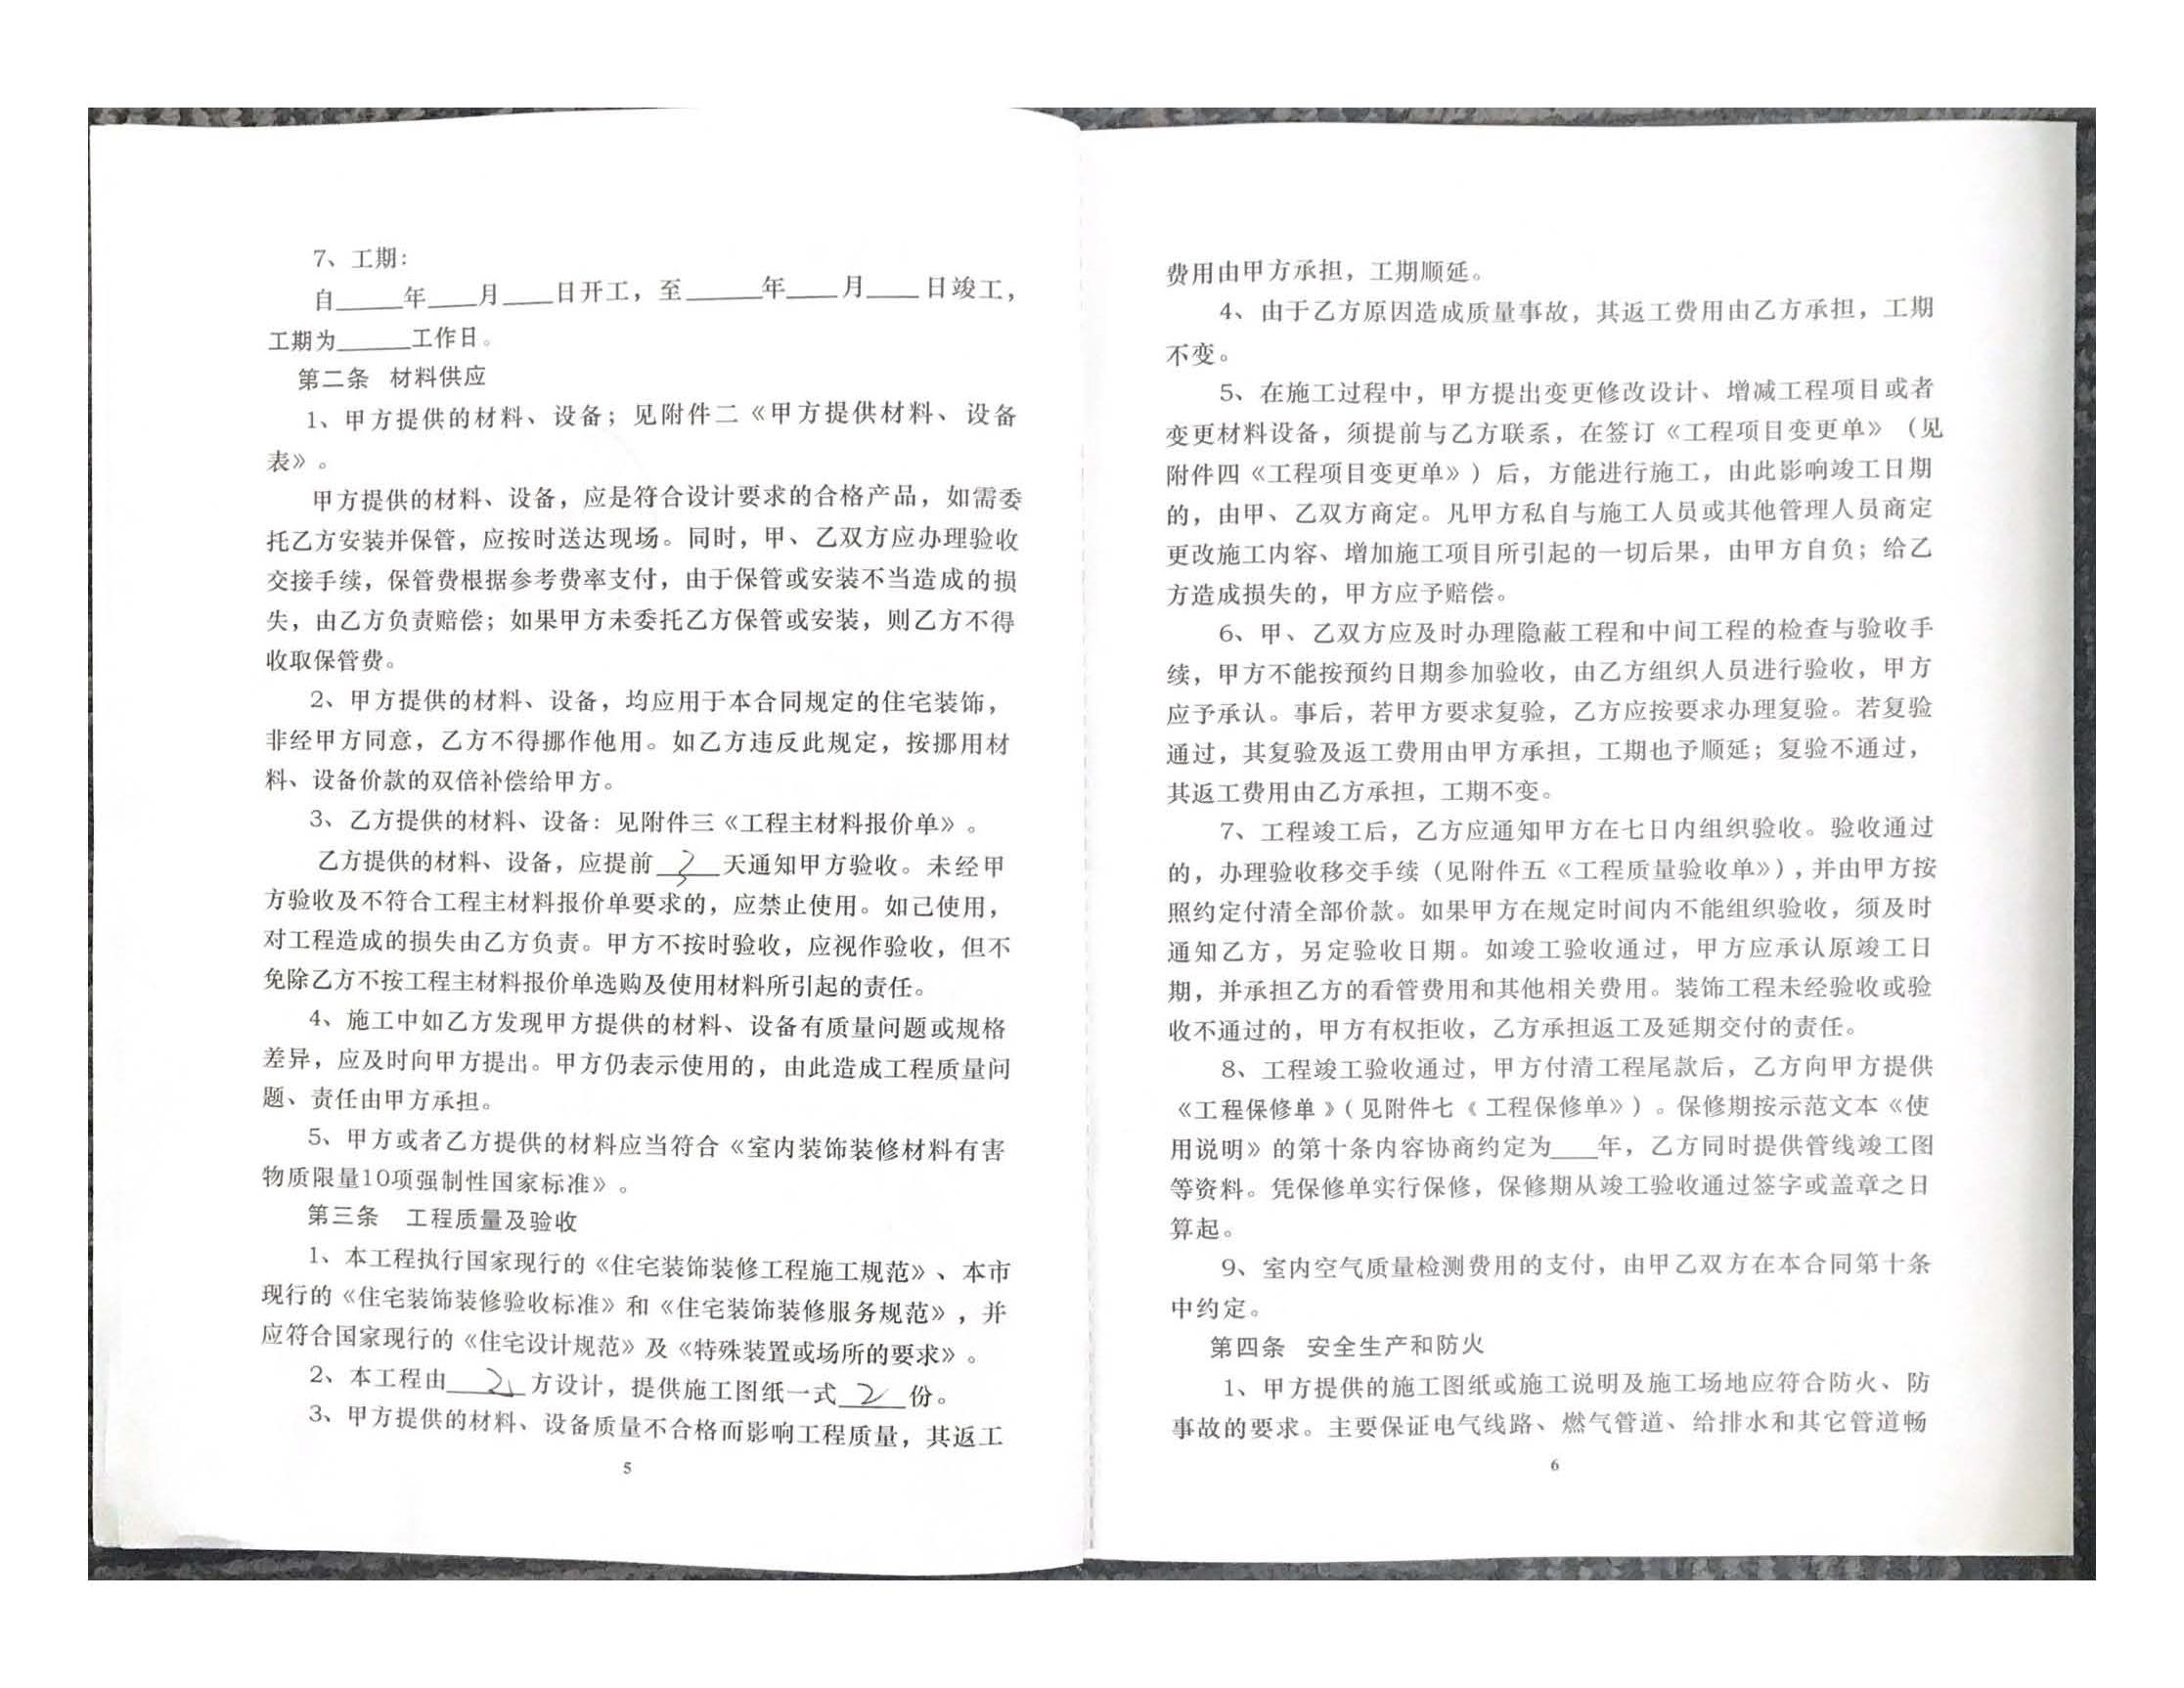 7、工期：
自_____年____月____日开工，至______年____月____日竣工，
工期为______工作日。
第二条 材料供应
1、甲方提供的材料、设备；见附件二《甲方提供材料、设备
表》。
甲方提供的材料、设备，应是符合设计要求的合格产品，如需委
托乙方安装并保管，应按时送达现场。同时，甲、乙双方应办理验收
交接手续，保管费根据参考费率支付，由于保管或安装不当造成的损
失，由乙方负责赔偿；如果甲方未委托乙方保管或安装，则乙方不得
收取保管费。
2、甲方提供的材料、设备，均应用于本合同规定的住宅装饰，
非经甲方同意，乙方不得挪作他用。如乙方违反此规定，按挪用材
料、设备价款的双倍补偿给甲方。
3、乙方提供的材料、设备：见附件三《工程主材料报价单》。
乙方提供的材料、设备，应提前 3 天通知甲方验收。未经甲
方验收及不符合工程主材料报价单要求的，应禁止使用。如己使用，
对工程造成的损失由乙方负责。甲方不按时验收，应视作验收，但不
免除乙方不按工程主材料报价单选购及使用材料所引起的责任。
4、施工中如乙方发现甲方提供的材料、设备有质量问题或规格
差异，应及时向甲方提出。甲方仍表示使用的，由此造成工程质量问
题、责任由甲方承担。
5、甲方或者乙方提供的材料应当符合《室内装饰装修材料有害
物质限量10项强制性国家标准》。
第三条 工程质量及验收
1、本工程执行国家现行的《住宅装饰装修工程施工规范》、本市
现行的《住宅装饰装修验收标准》和《住宅装饰装修服务规范》，并
应符合国家现行的《住宅设计规范》及《特殊装置或场所的要求》。
2、本工程由 乙 方设计，提供施工图纸一式 2 份。
3、甲方提供的材料、设备质量不合格而影响工程质量，其返工
5
费用由甲方承担，工期顺延。
4、由于乙方原因造成质量事故，其返工费用由乙方承担，工期
不变。
5、在施工过程中，甲方提出变更修改设计、增减工程项目或者
变更材料设备，须提前与乙方联系，在签订《工程项目变更单》（见
附件四《工程项目变更单》）后，方能进行施工，由此影响竣工日期
的，由甲、乙双方商定。凡甲方私自与施工人员或其他管理人员商定
更改施工内容、增加施工项目所引起的一切后果，由甲方自负；给乙
方造成损失的，甲方应予赔偿。
6、甲、乙双方应及时办理隐蔽工程和中间工程的检查与验收手
续，甲方不能按预约日期参加验收，由乙方组织人员进行验收，甲方
应予承认。事后，若甲方要求复验，乙方应按要求办理复验。若复验
通过，其复验及返工费用由甲方承担，工期也予顺延；复验不通过，
其返工费用由乙方承担，工期不变。
7、工程竣工后，乙方应通知甲方在七日内组织验收。验收通过
的，办理验收移交手续（见附件五《工程质量验收单》），并由甲方按
照约定付清全部价款。如果甲方在规定时间内不能组织验收，须及时
通知乙方，另定验收日期。如竣工验收通过，甲方应承认原竣工日
期，并承担乙方的看管费用和其他相关费用。装饰工程未经验收或验
收不通过的，甲方有权拒收，乙方承担返工及延期交付的责任。
8、工程竣工验收通过，甲方付清工程尾款后，乙方向甲方提供
《工程保修单》（见附件七《工程保修单》）。保修期按示范文本《使
用说明》的第十条内容协商约定为____年，乙方同时提供管线竣工图
等资料。凭保修单实行保修，保修期从竣工验收通过签字或盖章之日
算起。
9、室内空气质量检测费用的支付，由甲乙双方在本合同第十条
中约定。
第四条 安全生产和防火
1、甲方提供的施工图纸或施工说明及施工场地应符合防火、防
事故的要求。主要保证电气线路、燃气管道、给排水和其它管道畅
6